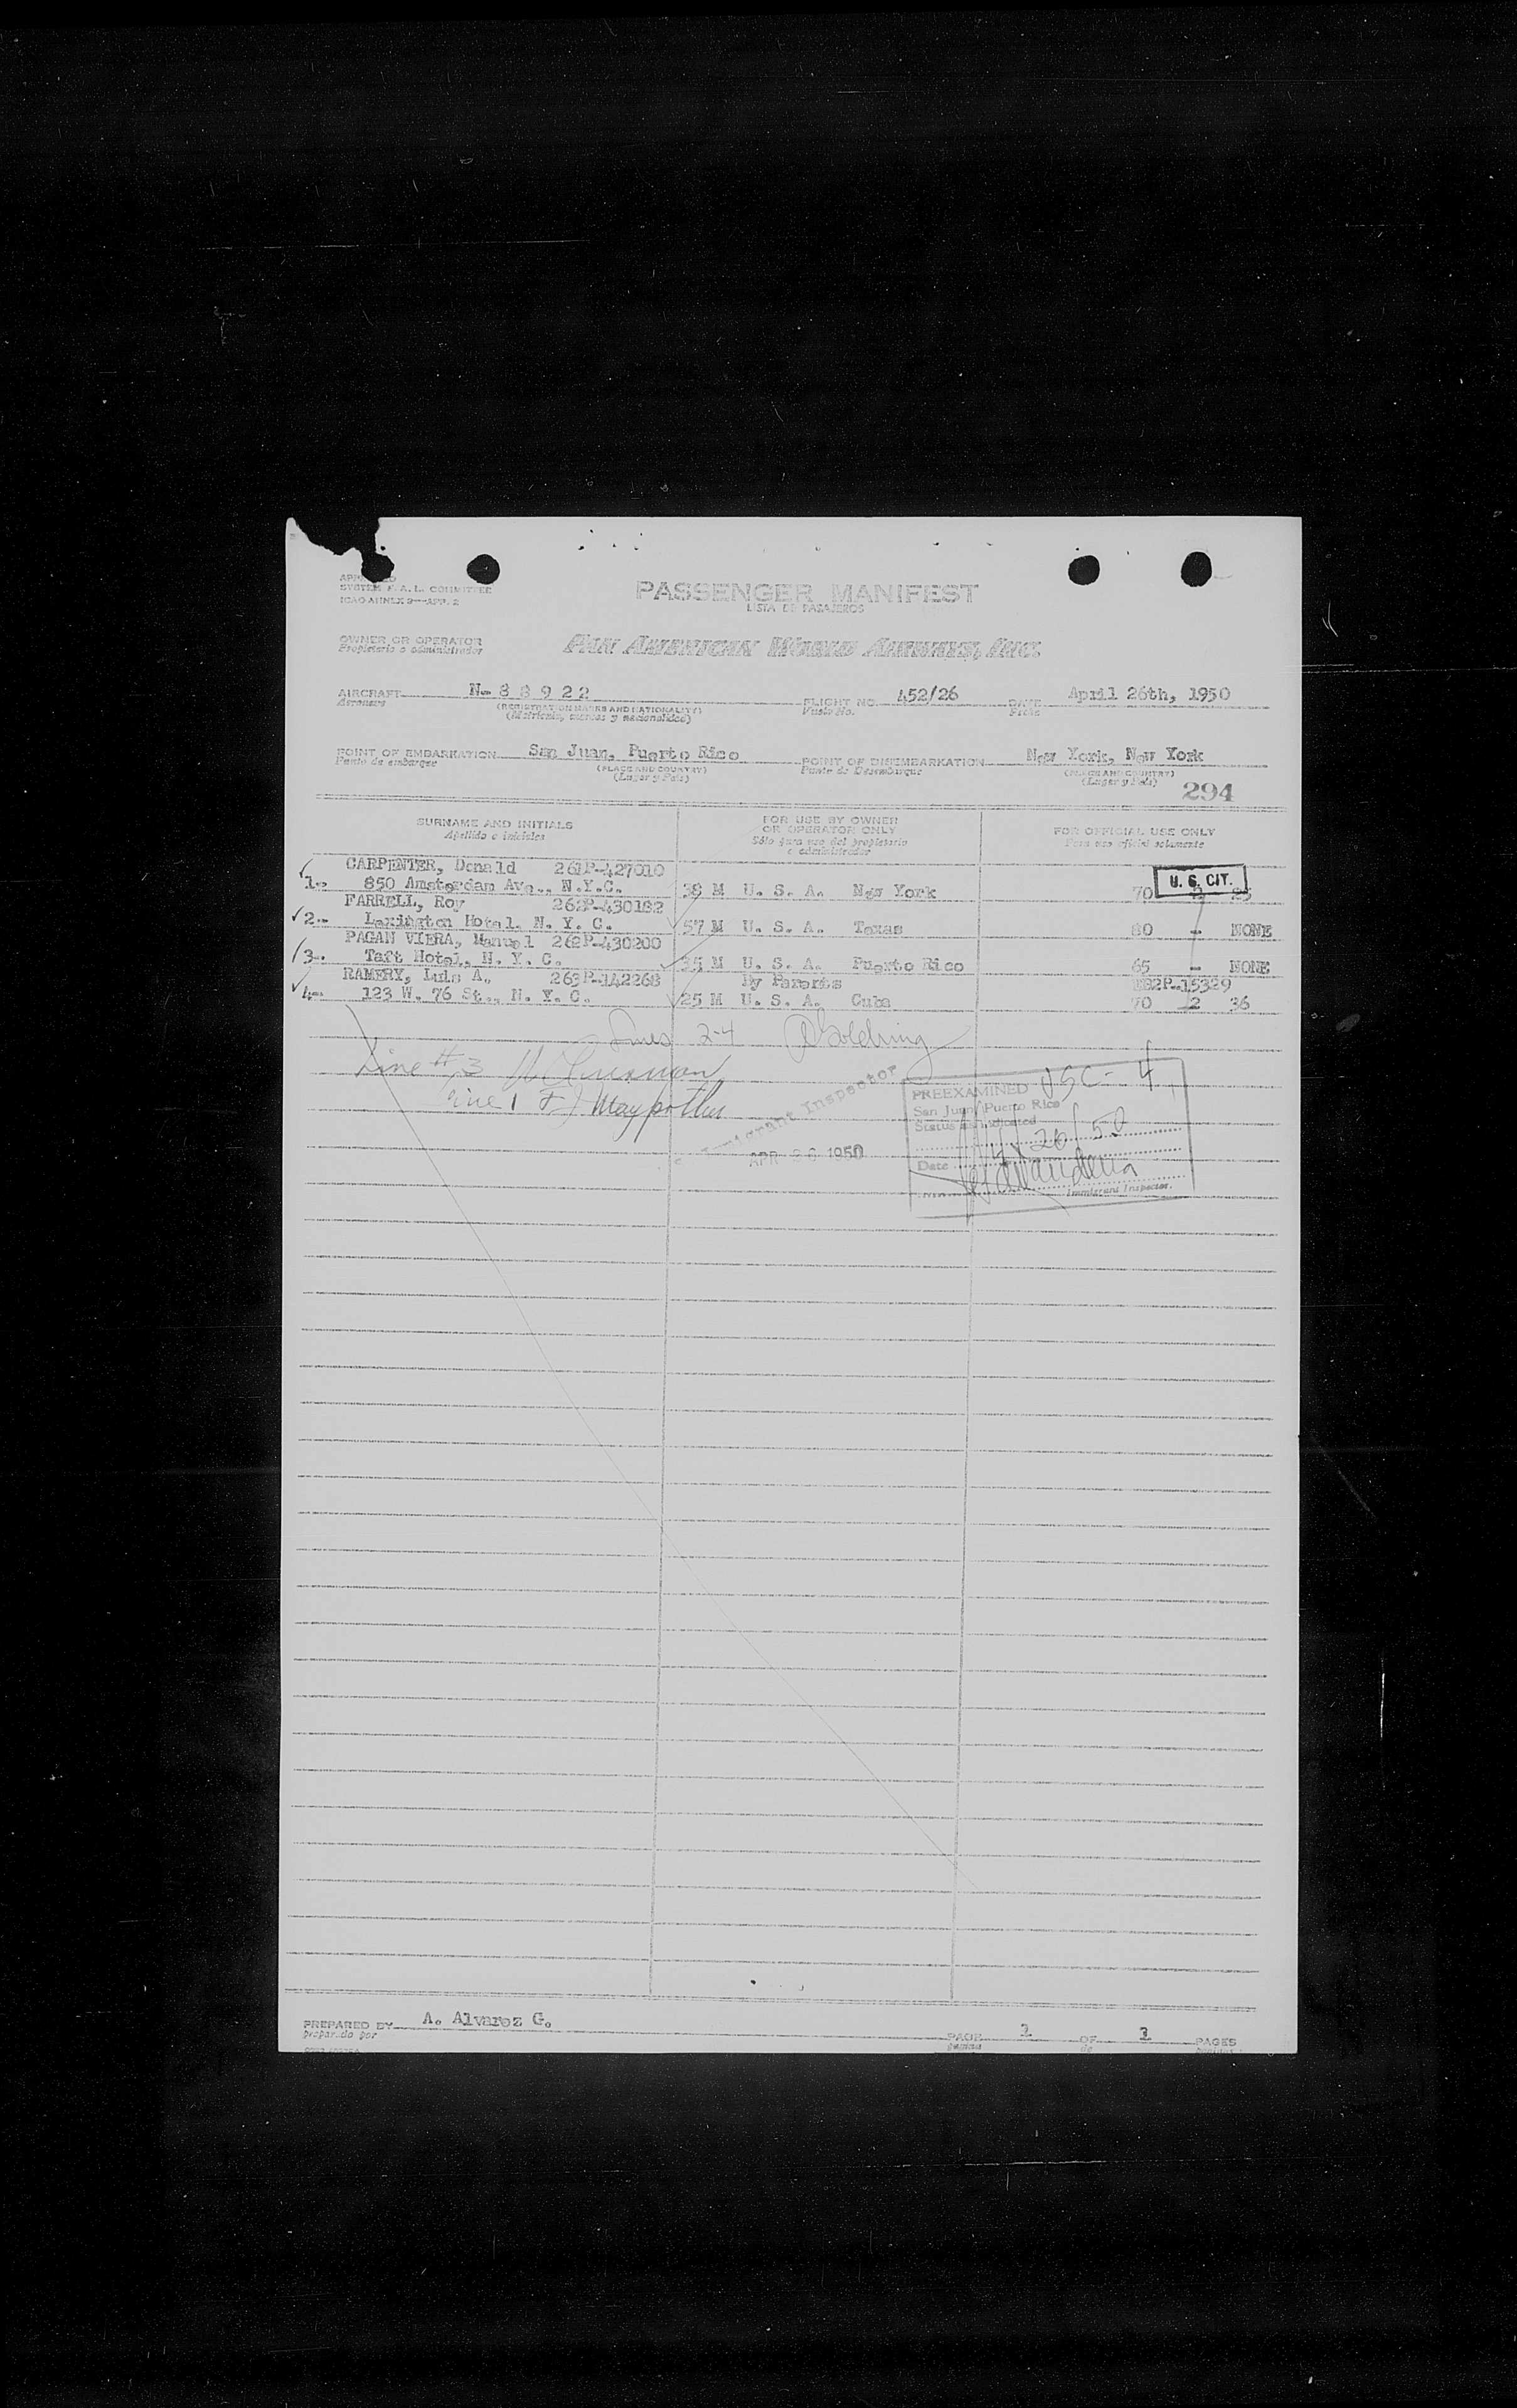 APPROVED
SYSTEM F. A. L. COMMITTEE
ICAO ANNEX 9—APP. 2
PASSENGER MANIFEST
LISTA DE PASAJEROS
OWNER OR OPERATOR
Propietario o administrador
PAN AMERICAN WORLD AIRWAYS, INC.
AIRCRAFT N- 8 8 9 2 2 FLIGHT NO. 452/26 DATE April 26th, 1950
Aeronave (REGISTRATION MARKS AND NATIONALITY) Vuelo No. Fecha
(Matrícula, marcas y nacionalidad)
POINT OF EMBARKATION San Juan, Puerto Rico POINT OF DISEMBARKATION New York, New York
Punto de embarque (PLACE AND COUNTRY) Punto de Desembarque (PLACE AND COUNTRY)
(Lugar y País) (Lugar y País)
294
SURNAME AND INITIALS FOR USE BY OWNER OR OPERATOR ONLY FOR OFFICIAL USE ONLY
Apellido e iniciales Sólo para uso del propietario o administrador Para uso oficial solamente
CARPENTER, Donald 261P-427010 U. S. CIT.
1-- 850 Amsterdam Ave., N.Y.C. 38 M U. S. A. New York 70 2 25
FARRELL, Roy 262P-430182
2-- Lexington Hotel, N. Y. C. 57 M U. S. A. Texas 80 - NONE
PAGAN VIERA, Manuel 262P-430200
3-- Taft Hotel, N. Y. C. 35 M U. S. A. Puerto Rico 65 - NONE
RAMERY, Luis A. 263P-142268 By Parents 15329
4-- 123 W. 76 St., N. Y. C. 25 M U. S. A. Cuba 70 2 36
Lines 2-4 Goldring
Line #3
Line 1 Maypother
Immigrant Inspector
APR 26 1950
PREEXAMINED USC - 4
San Juan, Puerto Rico
Status as Indicated
Date 4/26/50
Immigrant Inspector.
PREPARED BY A. Alvarez G. PAGE 1 OF 1 PAGES
preparado por página de páginas